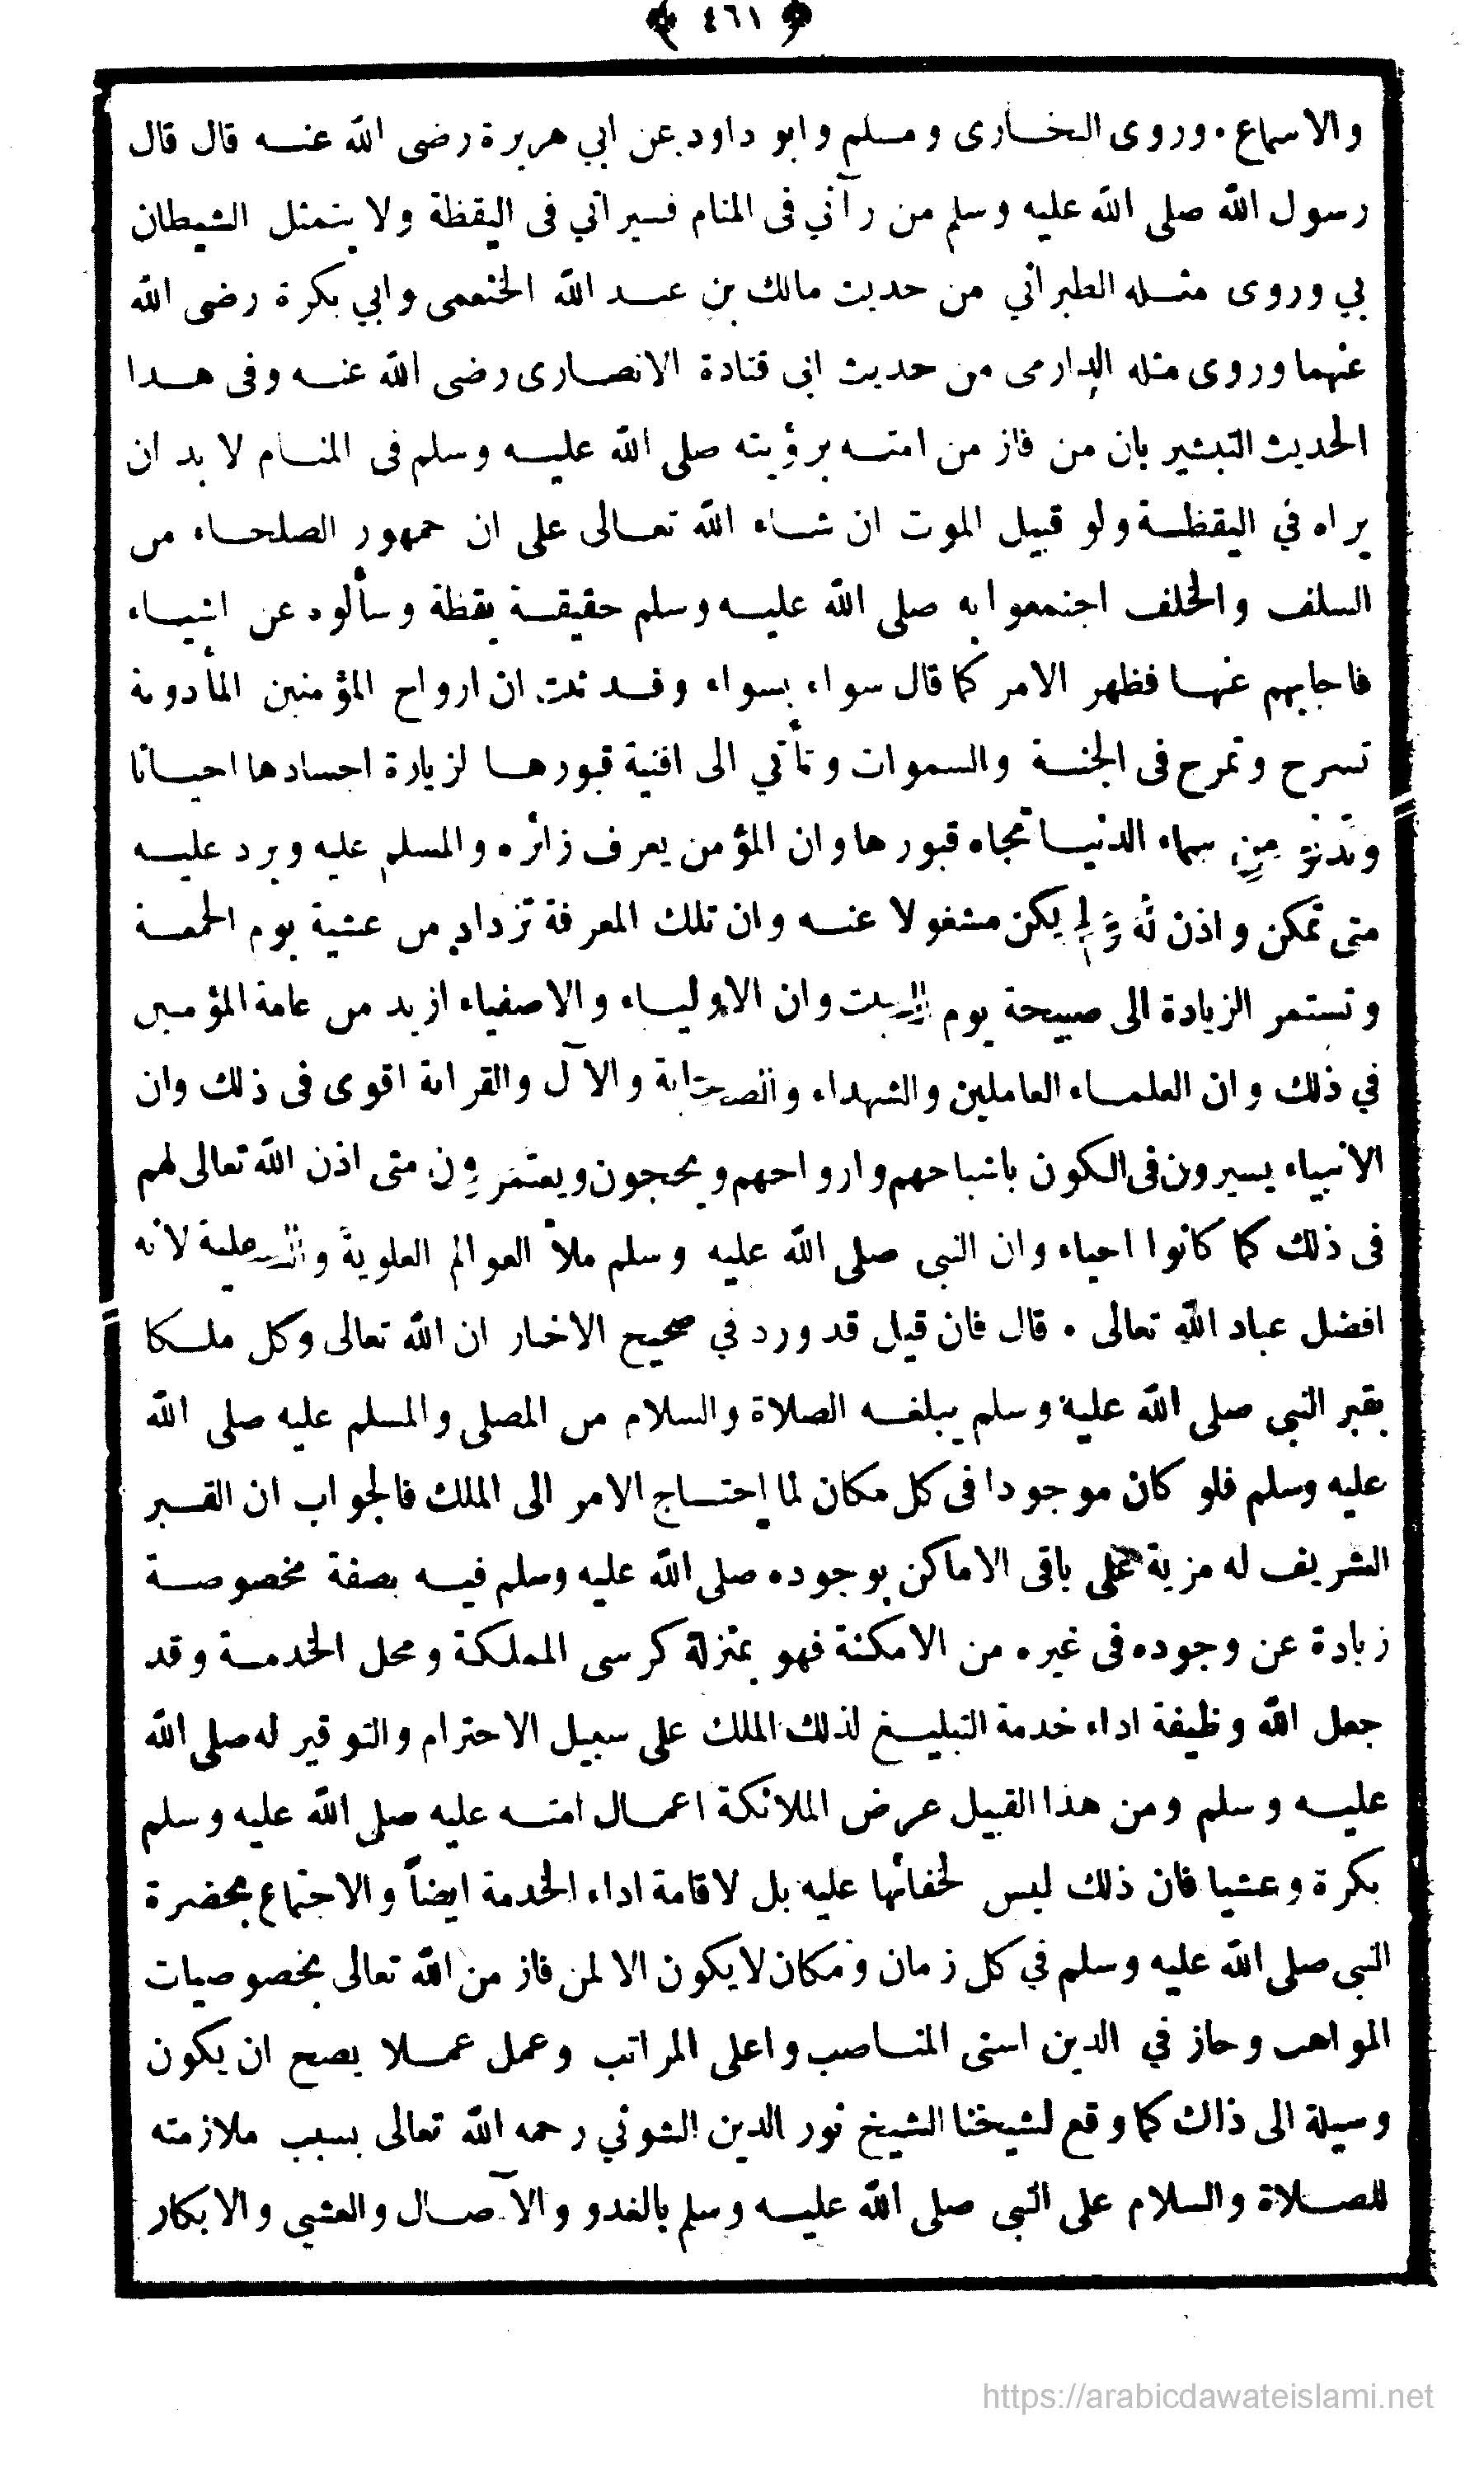 ﴿ ٤٦١ ﴾
والاسماع . وروى البخارى ومسلم وابو داود عن ابي هريرة رضى الله عنه قال قال
رسول الله صلى الله عليه وسلم من رآني فى المنام فسيراني فى اليقظة ولا يتمثل الشيطان
بي وروى مثله الطبراني من حديث مالك بن عبد الله الخثعمى وابي بكرة رضى الله
عنهما وروى مثله الدارمى من حديث ابى قتادة الانصارى رضى الله عنه وفى هذا
الحديث التبشير بان من فاز من امته برؤيته صلى الله عليه وسلم فى المنام لا بد ان
يراه في اليقظة ولو قبيل الموت ان شاء الله تعالى على ان جمهور الصلحاء من
السلف والخلف اجتمعوا به صلى الله عليه وسلم حقيقة يقظة وسألوه عن اشياء
فاجابهم عنها فظهر الامر كما قال سواء بسواء وقد ثبت ان ارواح المؤمنين المأذونة
تسرح وتمرح فى الجنة والسموات وتأتي الى افنية قبورها لزيارة اجسادها احيانا
وتدنو من سماء الدنيا تجاه قبورها وان المؤمن يعرف زائره والمسلم عليه ويرد عليه
متى تمكن واذن له ولم يكن مشغولا عنه وان تلك المعرفة تزداد من عشية يوم الجمعة
وتستمر الزيادة الى صبيحة يوم السبت وان الاولياء والاصفياء ازيد من عامة المؤمنين
في ذلك وان العلماء العاملين والشهداء والصحابة والآل والقرابة اقوى فى ذلك وان
الانبياء يسيرون فى الكون باشباحهم وارواحهم ويحجون ويعتمرون متى اذن الله تعالى لهم
فى ذلك كما كانوا احياء وان النبى صلى الله عليه وسلم ملأ العوالم العلوية والسفلية لانه
افضل عباد الله تعالى . قال فان قيل قد ورد في صحيح الاخبار ان الله تعالى وكل ملكا
بقبر النبى صلى الله عليه وسلم يبلغه الصلاة والسلام من المصلى والمسلم عليه صلى الله
عليه وسلم فلو كان موجودا فى كل مكان لما احتاج الامر الى الملك فالجواب ان القبر
الشريف له مزية على باقى الاماكن بوجوده صلى الله عليه وسلم فيه بصفة مخصوصة
زيادة عن وجوده فى غيره من الامكنة فهو بمنزلة كرسى المملكة ومحل الخدمة وقد
جعل الله وظيفة اداء خدمة التبليغ لذلك الملك على سبيل الاحترام والتوقير له صلى الله
عليه وسلم ومن هذا القبيل عرض الملائكة اعمال امته عليه صلى الله عليه وسلم
بكرة وعشيا فان ذلك ليس لخفائها عليه بل لاقامة اداء الخدمة ايضاً والاجتماع بحضرة
النبى صلى الله عليه وسلم في كل زمان ومكان لا يكون الا لمن فاز من الله تعالى بخصوصيات
المواهب وحاز في الدين اسنى المناصب واعلى المراتب وعمل عملا يصح ان يكون
وسيلة الى ذاك كما وقع لشيخنا الشيخ نور الدين الشوني رحمه الله تعالى بسبب ملازمته
للصلاة والسلام على النبى صلى الله عليه وسلم بالغدو والآصال والعشي والابكار
https://arabicdawateislami.net